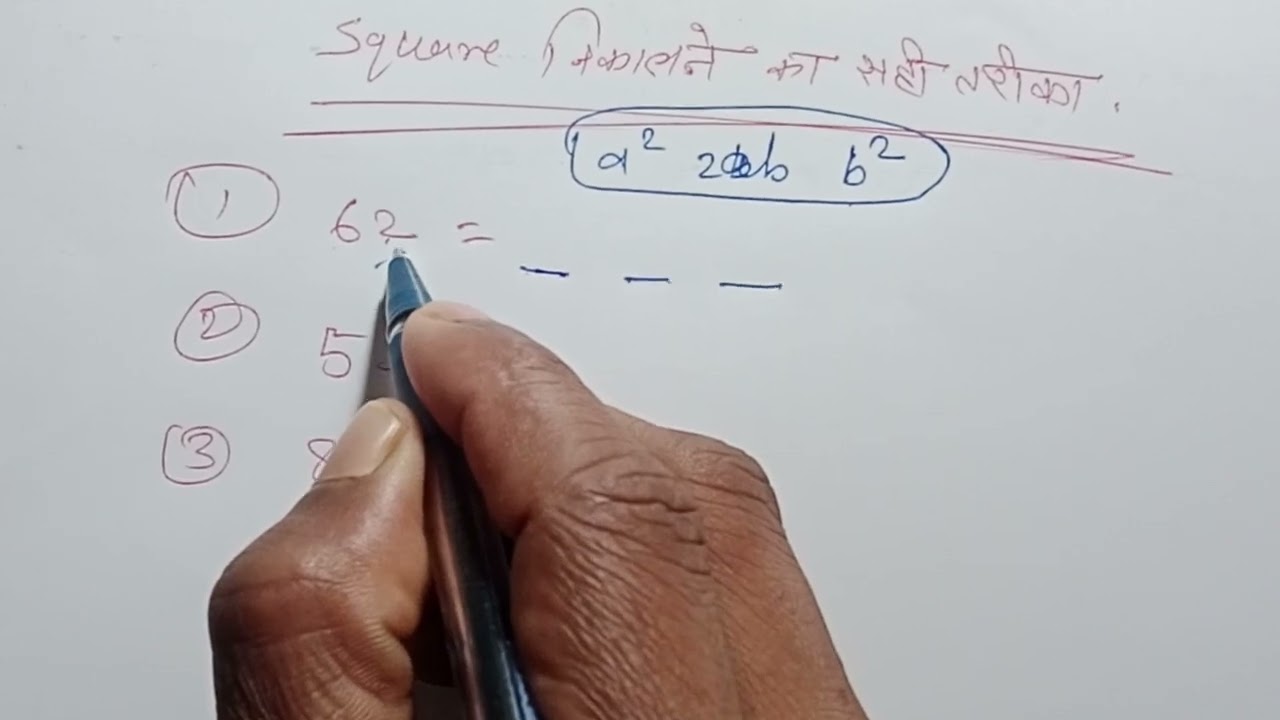 Square निकालने का सही तरीका .
a² 2ab b²
① 62 = _ _ _
② 5
③ 8